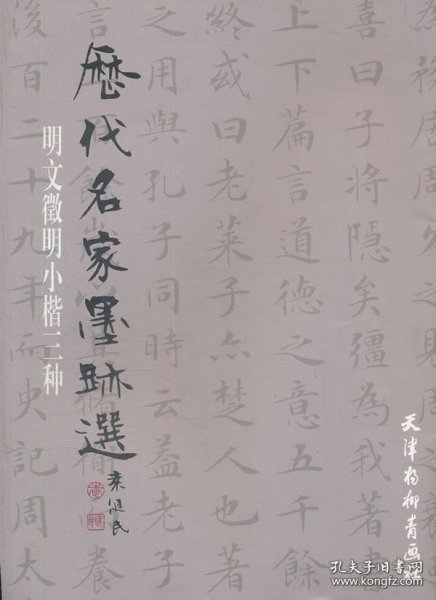 歷代名家墨跡選
明文徵明小楷三种
健民
天津杨柳青画社
務居周久之見周
喜曰子將隱矣彊為我著書
上下篇言道德之意五千餘
終或曰老萊子亦楚人也著
之用與孔子同時云葢老子
後百二十九年而史記周太
孔夫子旧书网
www.kongfz.com